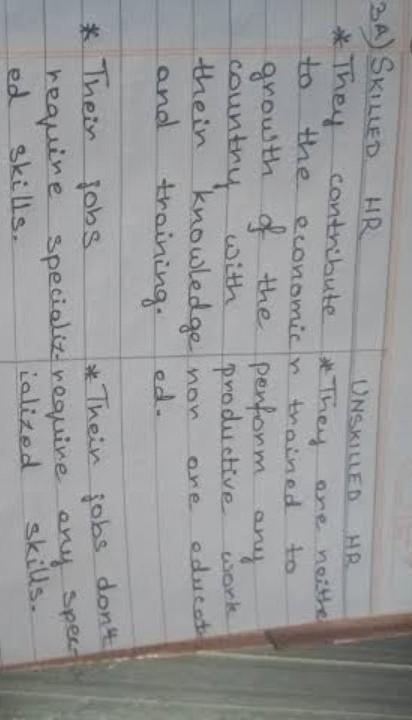 3A) SKILLED HR
* They contribute
to the economic
growth of the
country with
their knowledge
and training.
* Their jobs
require specializ-
ed skills.
UNSKILLED HR
* They are neithe
r trained to
perform any
productive work
nor are educat
ed.
* Their jobs don't
require any spec
ialized skills.